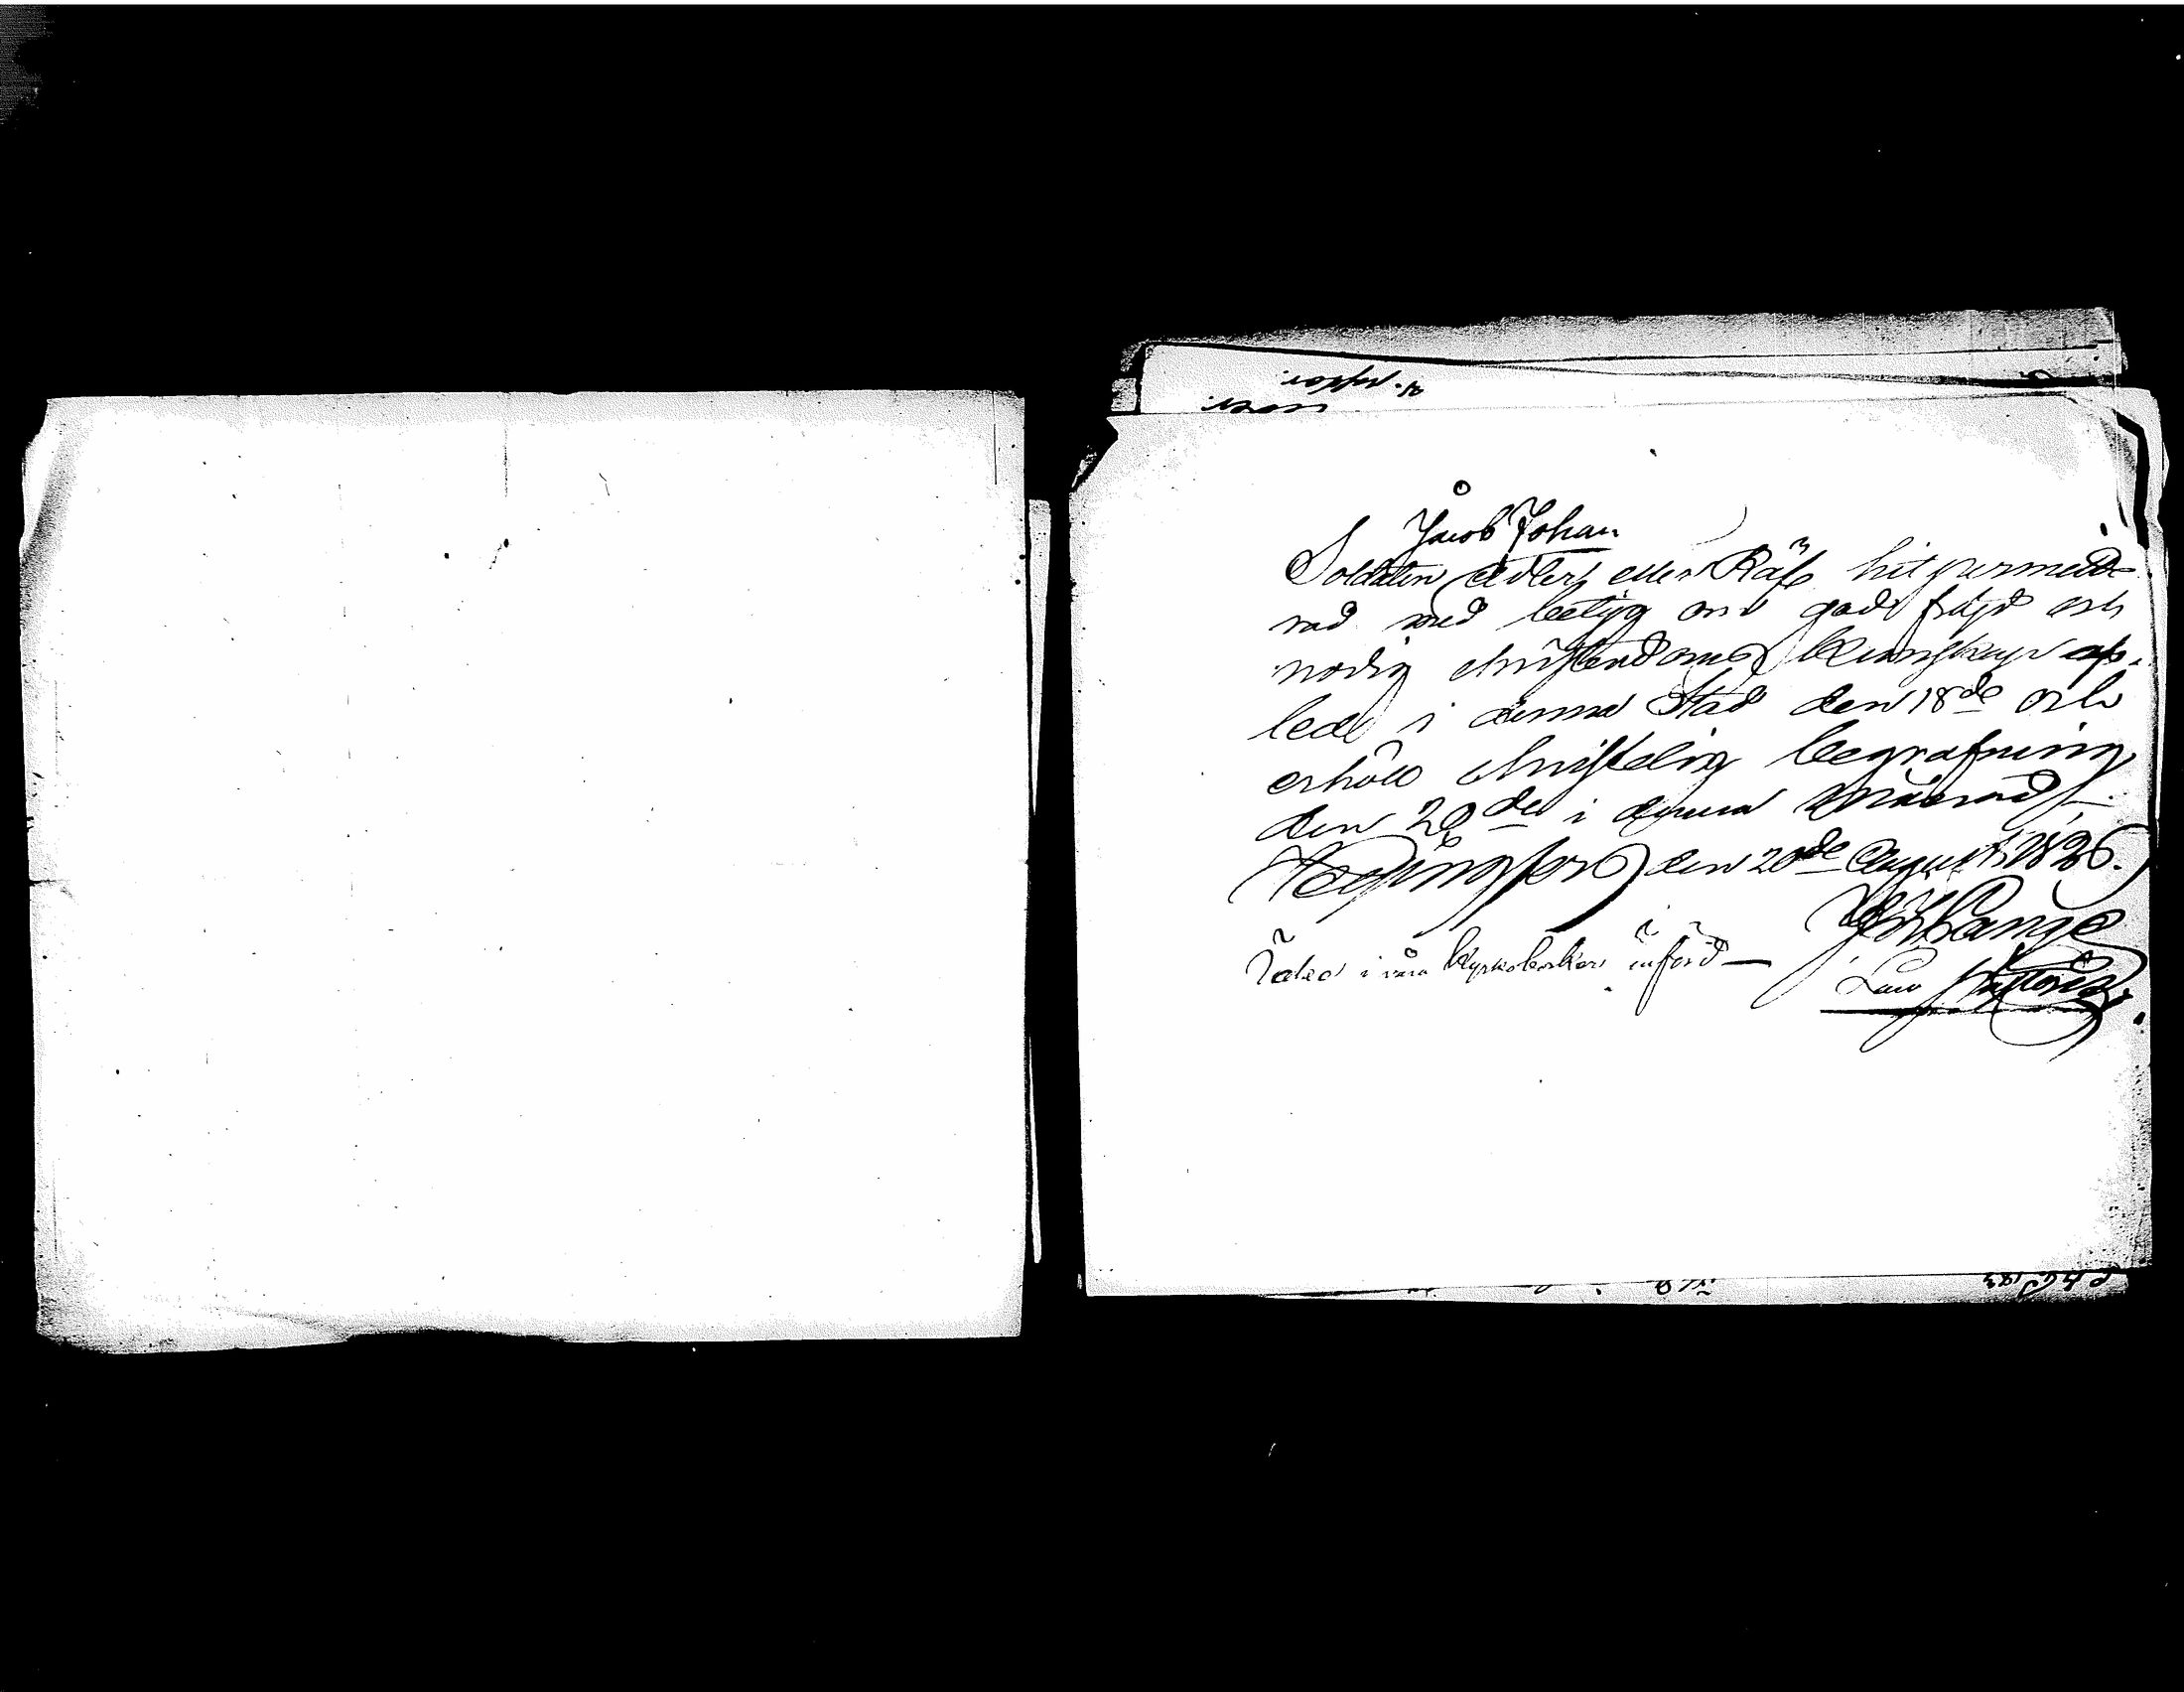 Jacob Johan
Soldaten Adlerz eller Räf hitpermitte-
rad med betyg om god frägd och
nödig christendoms kunskap af-
led i denna Stad den 18de och
erhöll christelig begrafning
den 20de i denna Månad
Helsingfors den 20de Augusti 1826.
Lange
i våra kyrkoböcker införd —
Pastoris